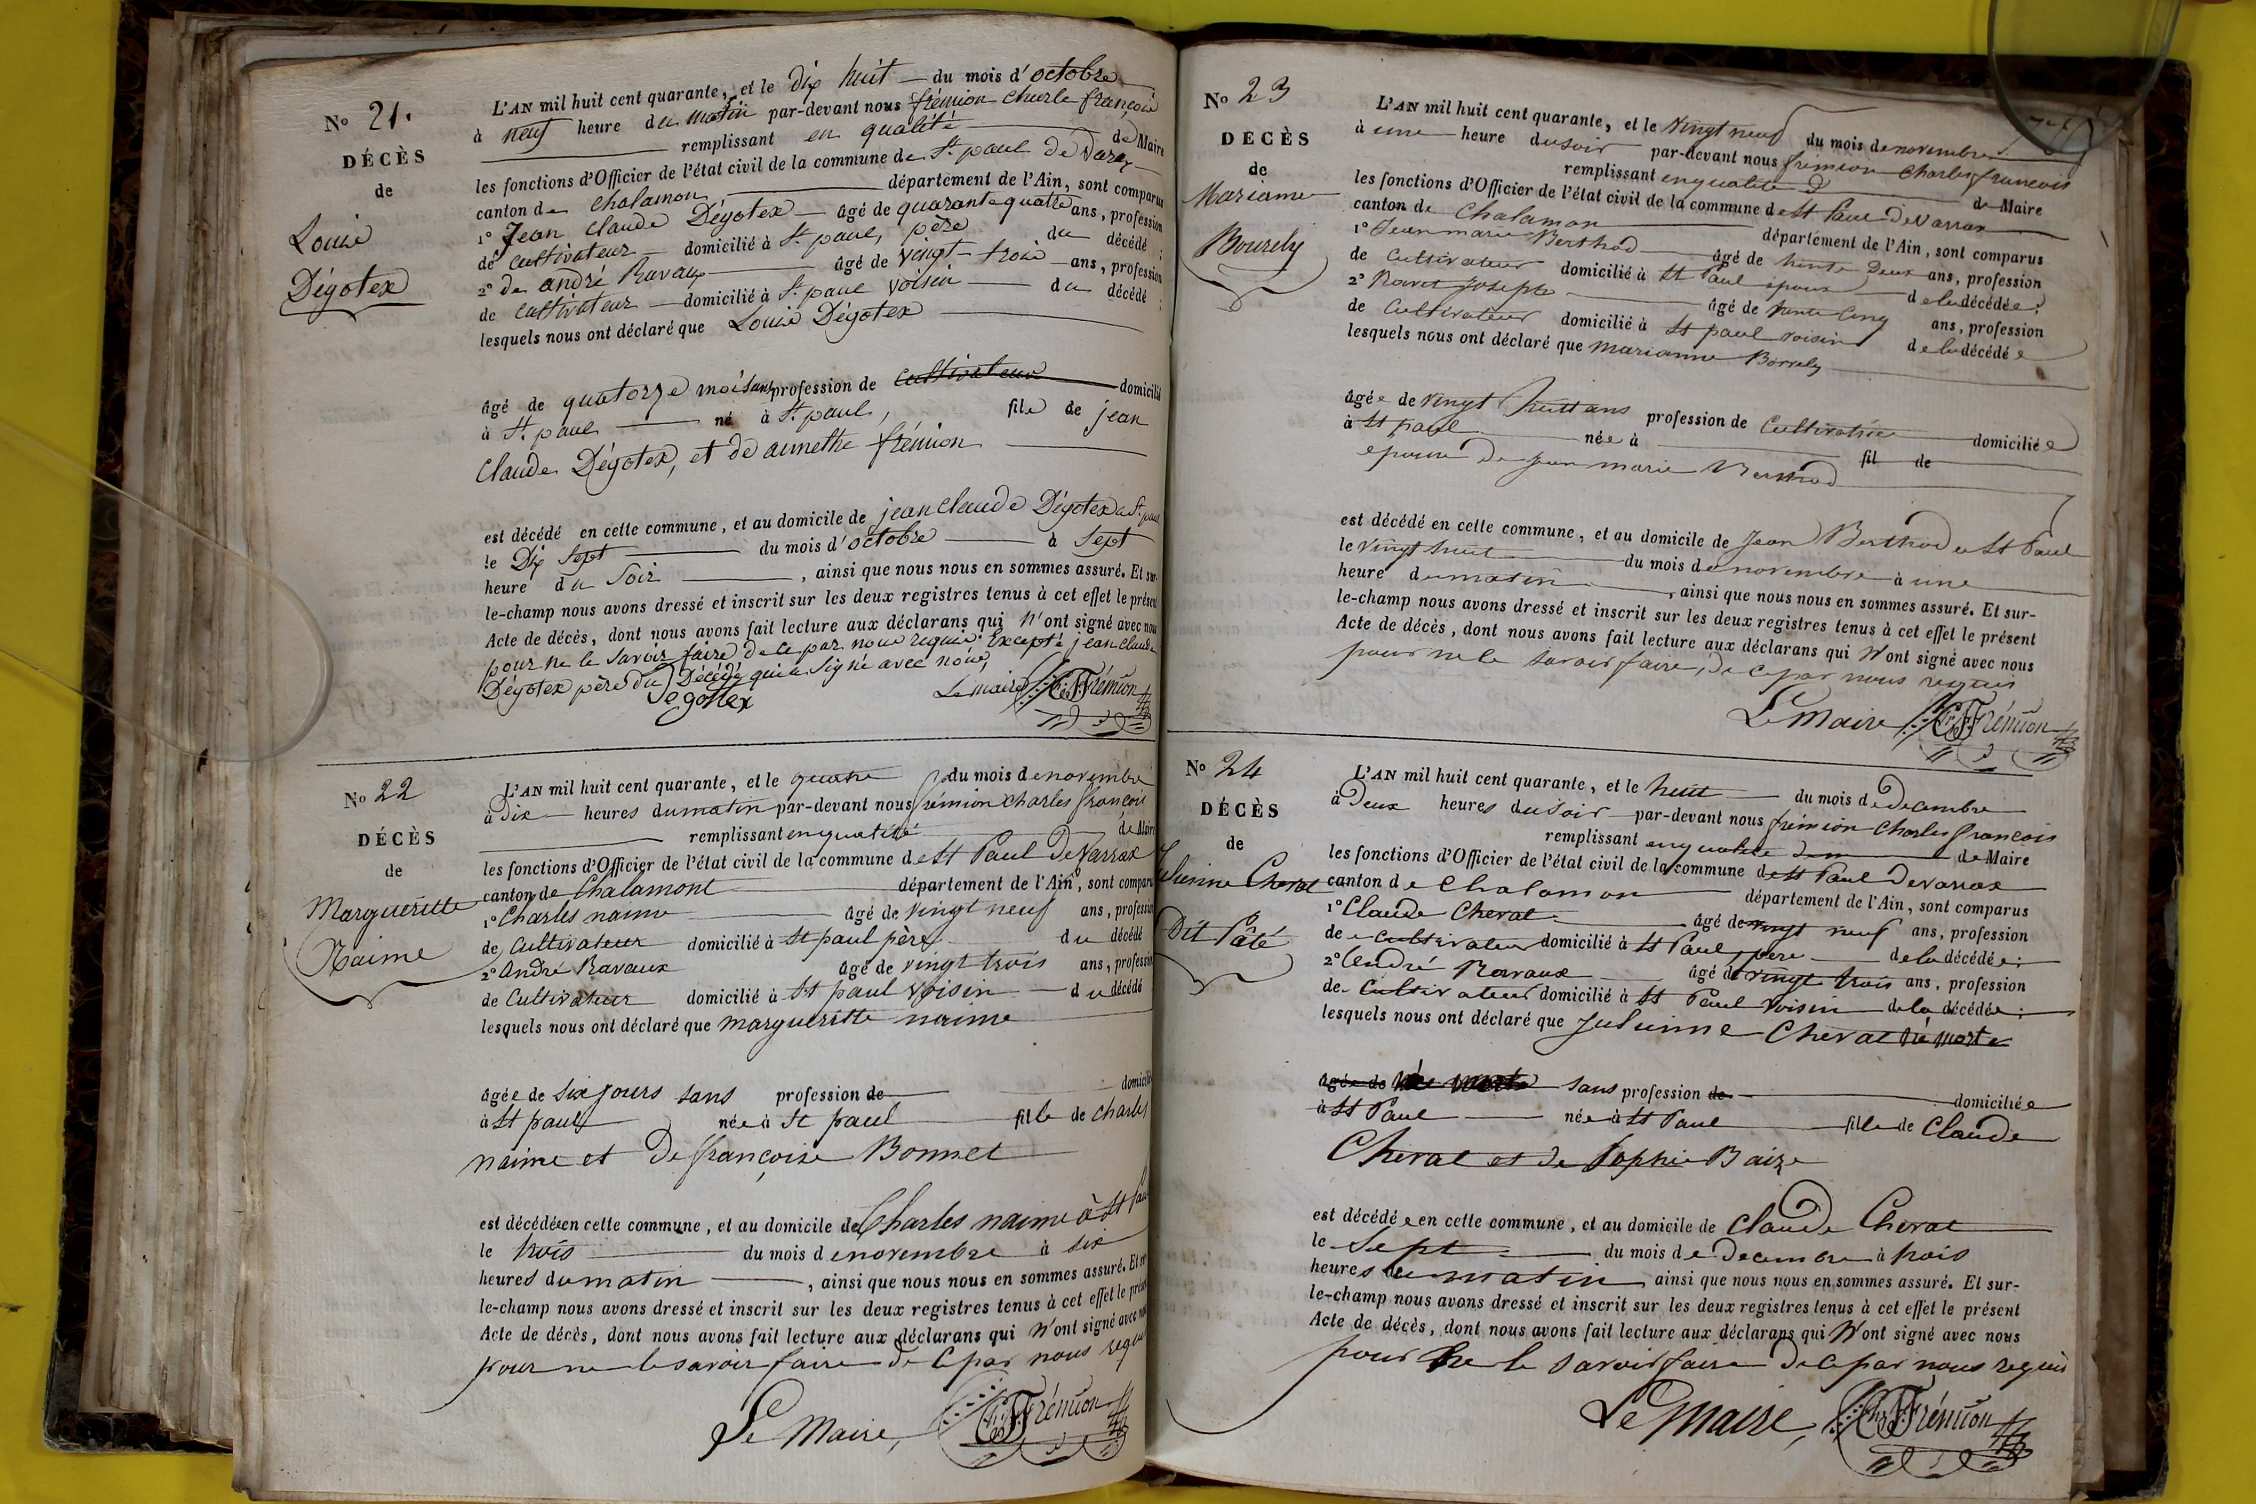 No 21.
DÉCÈS
de
Louis
Dégotex
L'AN mil huit cent quarante, et le dix huit du mois d'octobre
à neuf heure du matin par-devant nous frémion Charle françois
remplissant en qualité de Maire
les fonctions d'Officier de l'état civil de la commune de St. paul de Varax
canton de Chalamon département de l'Ain, sont comparus
1° Jean Claude Dégotex âgé de quarante quatre ans, profession
de cultivateur domicilié à St. paul, père du décédé;
2° de andré Ravaux âgé de vingt-trois ans, profession
de cultivateur domicilié à St. paul voisin du décédé;
lesquels nous ont déclaré que Louis Dégotex
âgé de quatorze mois sans profession de cultivateur domicilié
à St. paul né à St. paul, fils de jean
Claude Dégotex, et de annethe frémion
est décédé en cette commune, et au domicile de jean Claude Dégotex a St. paul
le Dix Sept du mois d'octobre à Sept
heure du Soir, ainsi que nous nous en sommes assuré. Et sur-
le-champ nous avons dressé et inscrit sur les deux registres tenus à cet effet le présent
Acte de décès, dont nous avons fait lecture aux déclarans qui N'ont signé avec nous
pour ne le Savoir faire de ce par nous requis. Excepté jean claude
Dégotex père du Décédé qui a Signé avec nous,
Degottex
Le maire Ch. F. Frémion
No 22
DÉCÈS
de
Margueritte
Naime
L'AN mil huit cent quarante, et le quatre du mois de novembre
à Dix heures du matin par-devant nous frémion Charles françois
remplissant en qualité de Maire
les fonctions d'Officier de l'état civil de la commune de St Paul De Varrax
canton de Chalamont département de l'Ain, sont comparus
1° Charles naime âgé de vingt neuf ans, profession
de Cultivateur domicilié à St paul père du décédé
2° André Ravaux âgé de vingt trois ans, profession
de Cultivateur domicilié à St paul voisin du décédé
lesquels nous ont déclaré que margueritte naime
âgée de six jours sans profession de domicilié
à St paul née à St paul fille de Charles
naime et De françoise Bonnet
est décédée en cette commune, et au domicile de Charles naime à St Paul
le trois du mois de novembre à six
heures du matin, ainsi que nous nous en sommes assuré. Et sur-
le-champ nous avons dressé et inscrit sur les deux registres tenus à cet effet le présent
Acte de décès, dont nous avons fait lecture aux déclarans qui N'ont signé avec nous
pour ne le savoir faire de ce par nous requis
Le Maire, Ch. F. Frémion
No 23
DECÈS
de
Mariame
Bourely
L'AN mil huit cent quarante, et le Vingt neuf du mois de novembre
à une heure du soir par-devant nous frémion Charles francois
remplissant en qualité d de Maire
les fonctions d'Officier de l'état civil de la commune de St Paul De Varrax
canton de Chalamon département de l'Ain, sont comparus
1° Jean marie Berthod âgé de trente Deux ans, profession
de Cultivateur domicilié à St Paul epoux de la décédée;
2° Ravet Joseph âgé de trente Cinq ans, profession
de Cultivateur domicilié à St paul voisin de la décédée
lesquels nous ont déclaré que marianne Borrely
âgée de vingt huit ans profession de Cultivatrice domiciliée
à St paul née à fil de
epouse de jean marie Berthod
est décédé en cette commune, et au domicile de Jean Berthod a St Paul
le vingt huit du mois de novembre à une
heure du matin, ainsi que nous nous en sommes assuré. Et sur-
le-champ nous avons dressé et inscrit sur les deux registres tenus à cet effet le présent
Acte de décès, dont nous avons fait lecture aux déclarans qui N'ont signé avec nous
pour ne le savoir faire, de ce par nous requis
Le Maire Ch. F. Frémion
No 24
DÉCÈS
de
Julienne Cherat
Dit Pâté
L'AN mil huit cent quarante, et le huit du mois de Decembre
à Deux heures du soir par-devant nous frémion Charles francois
remplissant en qualité de Maire
les fonctions d'Officier de l'état civil de la commune de St Paul De Varax
canton de Chalamon département de l'Ain, sont comparus
1° Claude Cherat âgé de vingt neuf ans, profession
de cultivateur domicilié à St Paul, pere de la décédée;
2° André Ravaux âgé de vingt trois ans, profession
de Cultivateur domicilié à St Paul voisin de la décédée;
lesquels nous ont déclaré que Julienne Cherat né morte
âgée de née morte sans profession de domiciliée
à St Paul née à St Paul fille de Claude
Cherat et de Sophie Baize
est décédée en cette commune, et au domicile de Claude Cherat
le Sept du mois de Decembre à trois
heures du matin ainsi que nous nous en sommes assuré. Et sur-
le-champ nous avons dressé et inscrit sur les deux registres tenus à cet effet le présent
Acte de décès, dont nous avons fait lecture aux déclarans qui N'ont signé avec nous
pour ne le savoir faire De ce par nous requis
Le Maire, Ch. F. Frémion